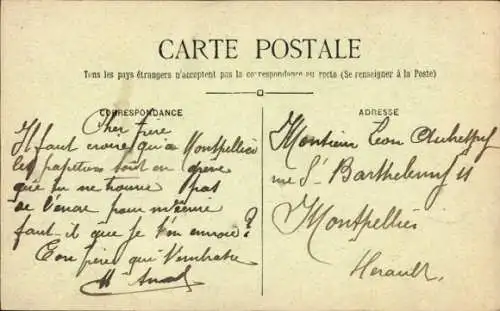 CARTE POSTALE
Tous les pays étrangers n'acceptent pas la correspondance au recto (Se renseigner à la Poste)
CORRESPONDANCE
Cher frère
Il faut croire qu'a Montpellier
les papetiers sont en greve
que tu ne trouve pas
de
faut-il que je t'en envoie ?
Ton frère qui t'embrasse
ADRESSE
Monsieur Leon
rue St Barthelemy 11
Montpellier
Herault